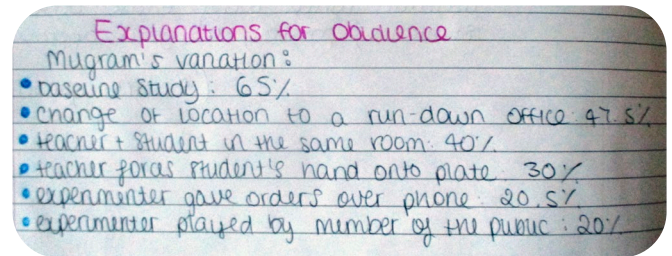 Explanations for Obidience
Mugram's variation:
• baseline study: 65%
• change of location to a run-down office: 47.5%
• teacher + student in the same room: 40%
• teacher forces student's hand onto plate: 30%
• experimenter gave orders over phone: 20.5%
• experimenter played by member of the public: 20%